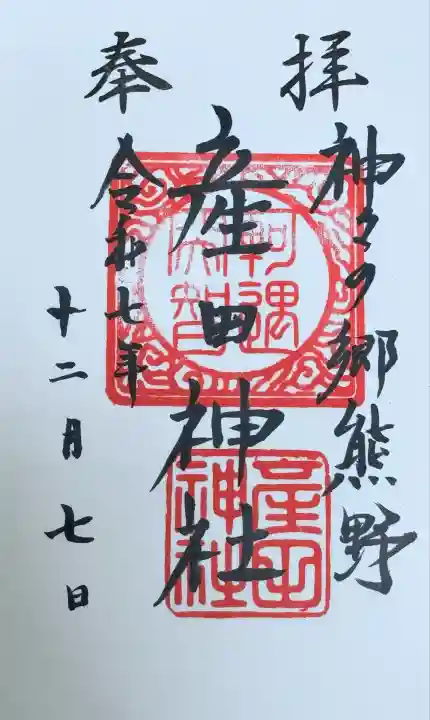 奉拝
神々の郷熊野
産田神社
令和七年
十二月七日
軻遇
突智
産田
神社